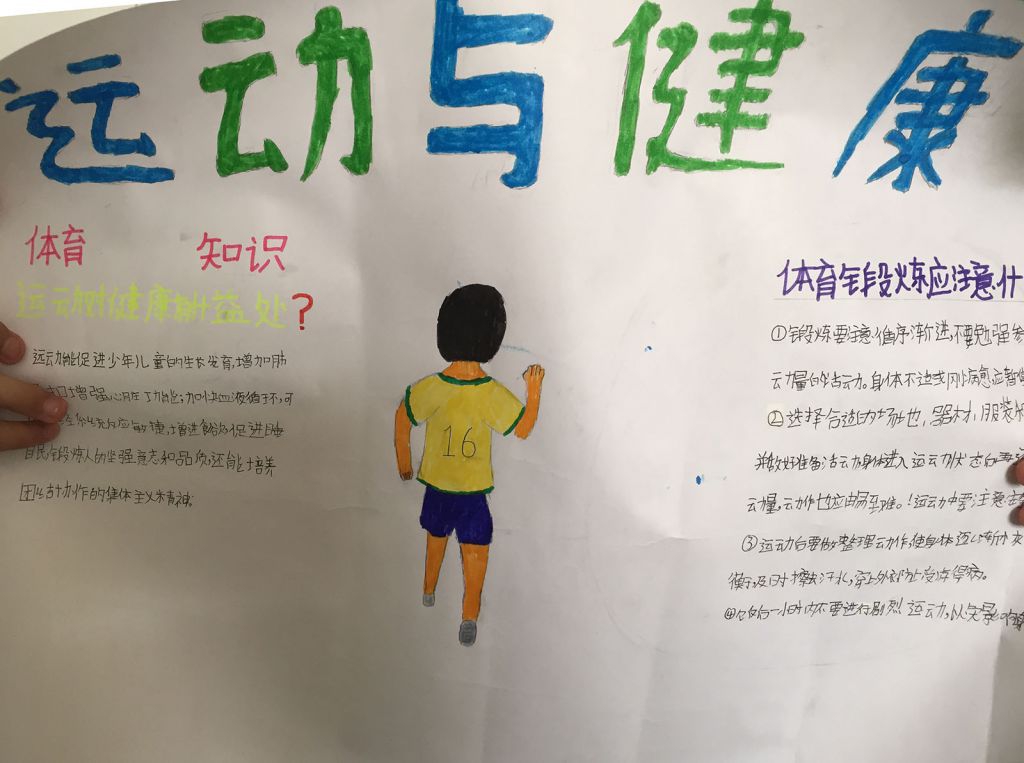 运动与健康
体育 知识
运动对健康有什么益处?
运动能促进少年儿童的生长发育,增加肺
增强心脏功能;加快血液循环,可
反应敏捷,增进食欲促进睡
民锻炼人的坚强意志和品质还能培养
团结协作的集体主义精神。
16
体育锻炼应注意什
①锻炼要注意循序渐进,不要勉强参
动量的活动。身体不适或刚病愈应暂
②选择合适的场地,器材,服装
并做好准备活动身体进入运动状态后再
动量,动作也应由易至难。!运动中要注意
③运动后要做整理动作,使身体逐渐恢
衡,及时擦去汗水,穿上外衣防止受凉得病。
④饭后一小时内不要进行剧烈运动,以免影响